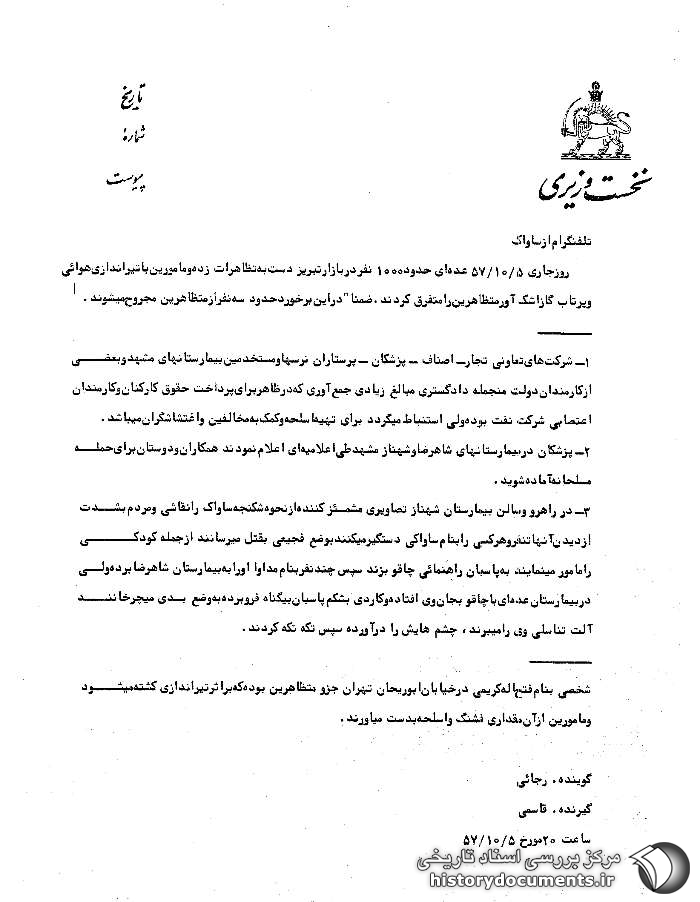 تاریخ
شمارهٔ
پیوست
نخست وزیری
تلفنگرام از ساواک
روز جاری ۵۷/۱۰/۵ عده‌ای حدود ۱۰۰۰ نفر در بازار تبریز دست به تظاهرات زده و مامورین با تیراندازی هوائی
و پرتاب گاز اشک آور متظاهرین را متفرق کردند . ضمنا" در این برخورد حدود سه نفر از متظاهرین مجروح میشوند .
۱ــ شرکت های تعاونی تجارــ اصناف ــ پزشکان ــ پرستاران نرسها و مستخدمین بیمارستانهای مشهد و بعضــــی
از کارمندان دولت منجمله دادگستری مبالغ زیادی جمع آوری که در ظاهر برای پرداخت حقوق کارکنان و کارمندان
اعتصابی شرکت نفت بوده ولی استنباط میگردد برای تهیه اسلحه و کمک به مخالفین و اغتشاشگران میباشد .
۲ــ پزشکان در بیمارستانهای شاهرضا و شهناز مشهد طی اعلامیه‌ای اعلام نمودند همکاران و دوستان برای حملـــه
مسلحانه آماده شوید .
۳ــ در راهرو و سالن بیمارستان شهناز تصاویری مشمئز کننده از نحوه شکنجه ساواک را نقاشی و مردم بشـــدت
از دیدن آنها تنفر و هر کسی را بنام ساواکی دستگیر میکنند بوضع فجیعی بقتل میرسانند از جمله کودکـــــی
را مامور مینمایند به پاسبان راهنمائی چاقو بزند سپس چند نفر بنام مداوا او را به بیمارستان شاهرضا برده ولــی
در بیمارستان عده‌ای با چاقو بجان وی افتاده و کاردی بشکم پاسبان بیگناه فرو برده به وضع بــدی میچرخاننـــــد
آلت تناسلی وی را میبرند ، چشم هایش را درآورده سپس تکه تکه کردند .
شخصی بنام فتح‌اله کریمی در خیابان ابوریحان تهران جزو متظاهرین بوده که بر اثر تیراندازی کشته میشـــــود
و مامورین از آن مقداری فشنگ و اسلحه بدست میاورند .
گوینده . رجائی
گیرنده . قاسمی
ساعت ۲۰ مورخ ۵۷/۱۰/۵
مرکز بررسی اسناد تاریخی
historydocuments.ir